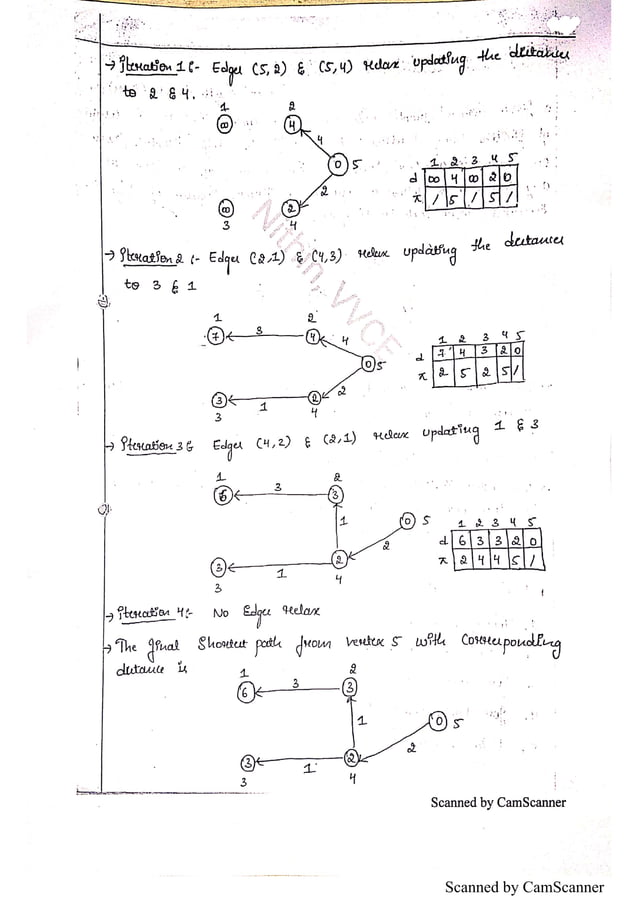 → Iteration 1 :- Edges (5,2) & (5,4) relax updating the distances
to 2 & 4.
1 2
∞ 4
4
0 5
2
∞ 2
3 4
1 2 3 4 5
d ∞ 4 ∞ 2 0
π / 5 / 5 /
→ Iteration 2 :- Edges (2,1) & (4,3) relax updating the distances
to 3 & 1
1 2
7 3 4
4
0 5
2
3 1 2
3 4
1 2 3 4 5
d 7 4 3 2 0
π 2 5 2 5 /
→ Iteration 3 :- Edges (4,2) & (2,1) relax updating 1 & 3
1 2
6 3 3
1
0 5
2
3 1 2
3 4
1 2 3 4 5
d 6 3 3 2 0
π 2 4 4 5 /
→ Iteration 4 :- No Edges relax
→ The final Shortest path from vertex 5 with corresponding
distance is
1 2
6 3 3
1
0 5
2
3 1 2
3 4
Nithin, VVCE
Scanned by CamScanner
Scanned by CamScanner